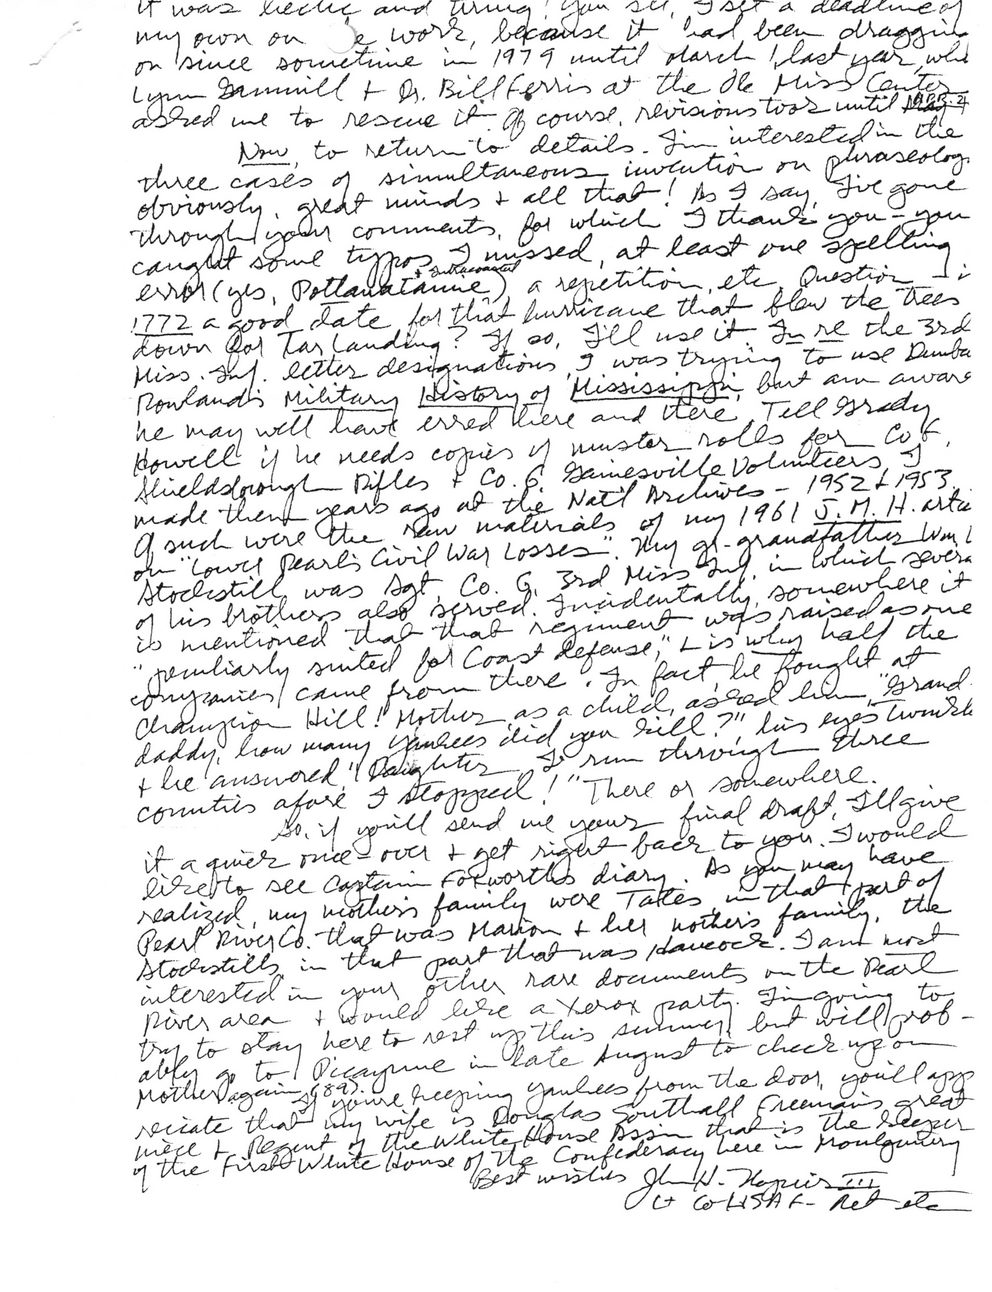 it was hectic and tiring! You see, I set a deadline of
my own on e work, because it had been draggin
on since sometime in 1979 until March last year, wh
Lynn Gammill & Dr. Bill Ferris at the Ole Miss Center
asked me to rescue it. Of course, revisions took until
Now, to return to details. I'm interested in the
three cases of simultaneous invention on phraseolog
obviously, great minds & all that! As I say, I've gone
through your comments, for which I thank you - you
caught some typos I missed, at least one spelling
& Intracoastal
error (yes, ) a repetition, etc. Question - i
1772 a good date for that hurricane that blew the trees
down for Tar Landing? If so, I'll use it. In re the 3rd
Miss. Inf. letter designations, I was trying to use Dunba
Rowland's Military History of Mississippi, but am aware
he may well have erred here and there. Tell Grady
Howell if he needs copies of muster rolls for Co.
Shieldsborough Rifles & Co. G, Gainesville Volunteers, I
made them years ago at the Nat'l Archives - 1952 & 1953.
Of such were the raw materials of my 1961 J.M.H. artic
on "Lower Pearl's Civil War Losses". My gr-grandfather Wm.
Stockstill was Sgt, Co. G, 3rd Miss Inf, in which severa
of his brothers also served. Incidentally, somewhere it
is mentioned that that regiment was raised as one
"peculiarly suited for Coast defense," & is why half the
companies came from there. In fact, he fought at
Champion Hill! Mother as a child, asked him "Grand
daddy, how many Yankees did you kill?" his eyes twinkle
& he answered, "Daughter, I run through three
counties afore I stopped!" There or somewhere.
So, if you'll send me your final draft, I'll give
it a quick once-over & get right back to you. I would
like to see Captain Foxworth's diary. As you may have
realized, my mother's family were Tates in that part of
Pearl River Co. that was Marion & her mother's family, the
Stockstills in that part that was Hancock. I am most
interested in your other rare documents on the Pearl
River area & would like a Xerox party. I'm going to
try to stay here to rest up this summer, but will prob-
ably go to Picayune in late August to check up on
Mother again (89).
If you're keeping Yankees from the door, you'll app
reciate that my wife is Douglas Southall Freeman's great
niece & Regent of the White House Assn that is the keeper
of the First White House of the Confederacy here in Montgomery
Best wishes John H. Napier III
Lt Col USAF - Ret etc